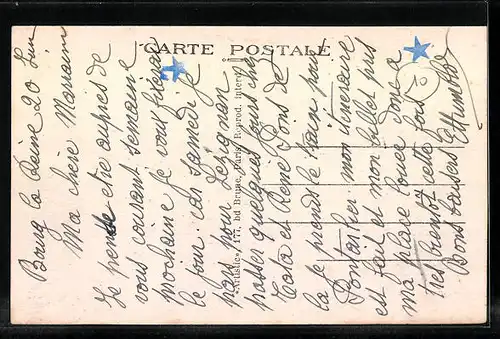 CARTE POSTALE
Bourg la Reine 20 Juin
Ma chère Marraine
Je pense être auprès de
vous courant semaine
prochaine je vous fixerai
le jour. car samedi je
pars pour Lezignan
passer quelques jours chez
Cora et René Pons de
la je prends le train pour
Pontarlier mon itineraire
est fait et mon billet pris
ma place louée donc a
tres bientôt cette fois
Bons baisers
177, bd Brune, Paris Reprod. Interd.